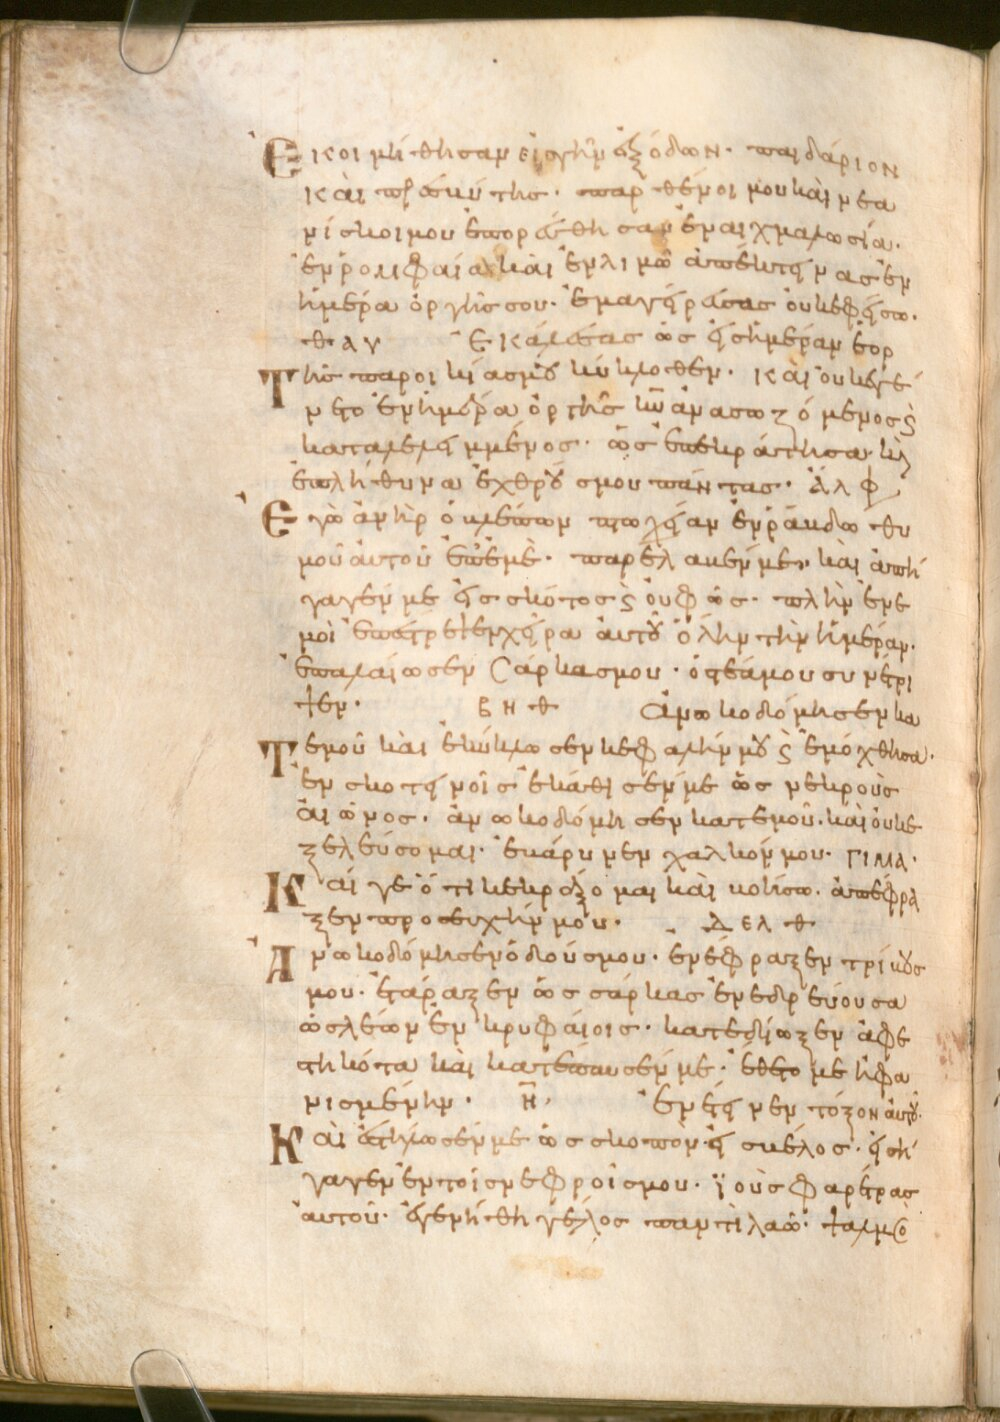 Ἐκοιμήθησαν εἰς γῆν ἐξόδων· παιδάριον
καὶ πρεσβύτης· παρθένοι μου καὶ νεα
νίσκοι μου ἐπορεύθησαν ἐν αἰχμαλωσία·
ἐν ῥομφαία καὶ ἐν λιμῶ ἀπέκτεινας ἐν
ἡμέρα ὀργῆς σου· ἐμαγείρευσας οὐκ ἐφείσω·
θαυ Ἐκάλεσας ὡς εἰς ἡμέραν ἑορ
Τῆς παροικίας μου κύκλοθεν· καὶ οὐκ ἐγέ
νετο ἐν ἡμέρα ὀργῆς κυ ἀνασωζόμενος ϛ
καταλελειμμένος· ὡς ἐπεκράτησα κ
ἐπλήθυνα ἐχθρούς μου πάντας· ἀλφ
Ἐγὼ ἀνὴρ ὁ βλέπων πτωχείαν ἐν ῥάβδω θυ
μοῦ αὐτοῦ ἐπ' ἐμὲ· παρέλαβέν με· καὶ ἀπή
γαγέν με εἰς σκότος ϛ οὐ φῶς· πλὴν ἐν ἐ
μοὶ ἐπέστρεψεν χεῖρα αὐτοῦ ὅλην τὴν ἡμέραν·
ἐπαλαίωσεν σάρκας μου· ὀστέα μου συνέτρι
ψεν· βηθ Ἀνωκοδόμησεν κα
Τ ἐμοῦ καὶ ἐκύκλωσεν κεφαλήν μου ϛ ἐμόχθησα·
ἐν σκοτεινοῖς ἐκάθισέν με ὡς νεκροὺς
αἰῶνος· ἀνωκοδόμησεν κατ ἐμοῦ· καὶ οὐκ ἐ
ξελεύσομαι· ἐβάρυνεν χαλκόν μου· γιμα·
Καί γε ὅτι κεκράξομαι καὶ βοήσω· ἀπέφρα
ξεν προσευχήν μου· δελθ
Ἀνωκοδόμησεν ὁδούς μου· ἐνέφραξεν τρίβους
μου· ἐτάραξεν ὡς σάρκας ἐνεδρεύουσα
ὡς λέων ἐν κρυφαίοις· κατεδίωξεν ἀφε
στηκότα καὶ κατέπαυσέν με· ἔθετο με ἠφα
νισμένην· η· ἐνέτεινεν τόξον αὐτοῦ·
Καὶ ἐστήλωσέν με ὡς σκοπὸν εἰς βέλος· εἰσή
γαγεν ἐν τοῖς νεφροῖς μου· ϊοὺς φαρέτρας
αὐτοῦ· ἐγενήθη γέλος παντὶ λαῶ· ψαλμὸ